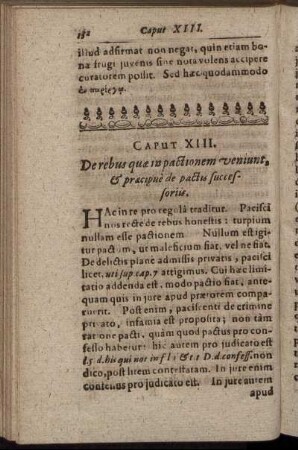 182 Caput XIII.
illud adfirmat non negat, quin etiam bo-
na frugi juvenis sine nota volens accipere
curatorem possit. Sed hæc quodammodo
ἐν παρέργῳ.
CAPUT XIII.
De rebus quæ in pactionem veniunt,
& præcipuè de pactis succes-
soriis.
HAc in re pro regulâ traditur. Pacisci
nos recte de rebus honestis: turpium
nullam esse pactionem Nullum est igi-
tur pactum, ut maleficium fiat, vel ne fiat.
De delictis plane admissis privatis, pacisci
licet, uti sup. cap. 7 attigimus. Cui hæc limi-
tatio addenda est, modo pactio fiat, ante-
quam quis in jure apud prætorem compa-
ruerit. Post enim, paciscenti de crimine
privato, infamia est proposita; non tam
ratione pacti, quàm quod pactus pro con-
fesso habetur: hic autem pro judicato est
l. 5 d. his qui not. inf l 1 & 11 D. d. confess. non
dico, post litem contestatam. In jure enim
confessus pro judicato est. In jure autem
apud